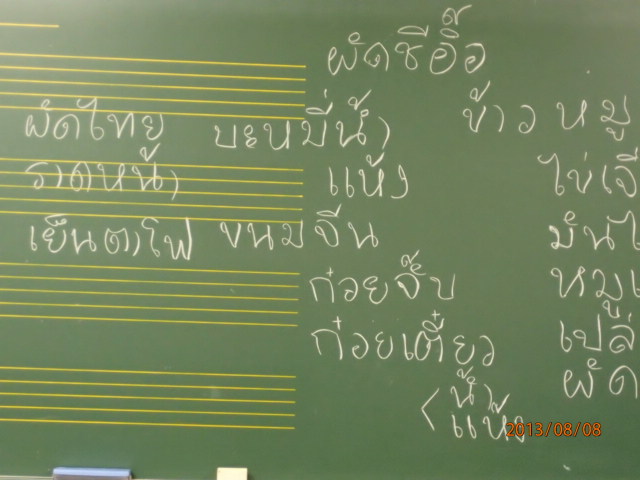 ผัดซีอิ๊ว
ผัดไทย บะหมี่น้ำ ข้าวหมู
ราดหน้า แห้ง ไข่เจี
เย็นตาโฟ ขนมจีน มันไ
ก๋วยจั๊บ หมูแ
ก๋วยเตี๋ยว เปลี่
น้ำ ผัด
< แห้ง
2013/08/08